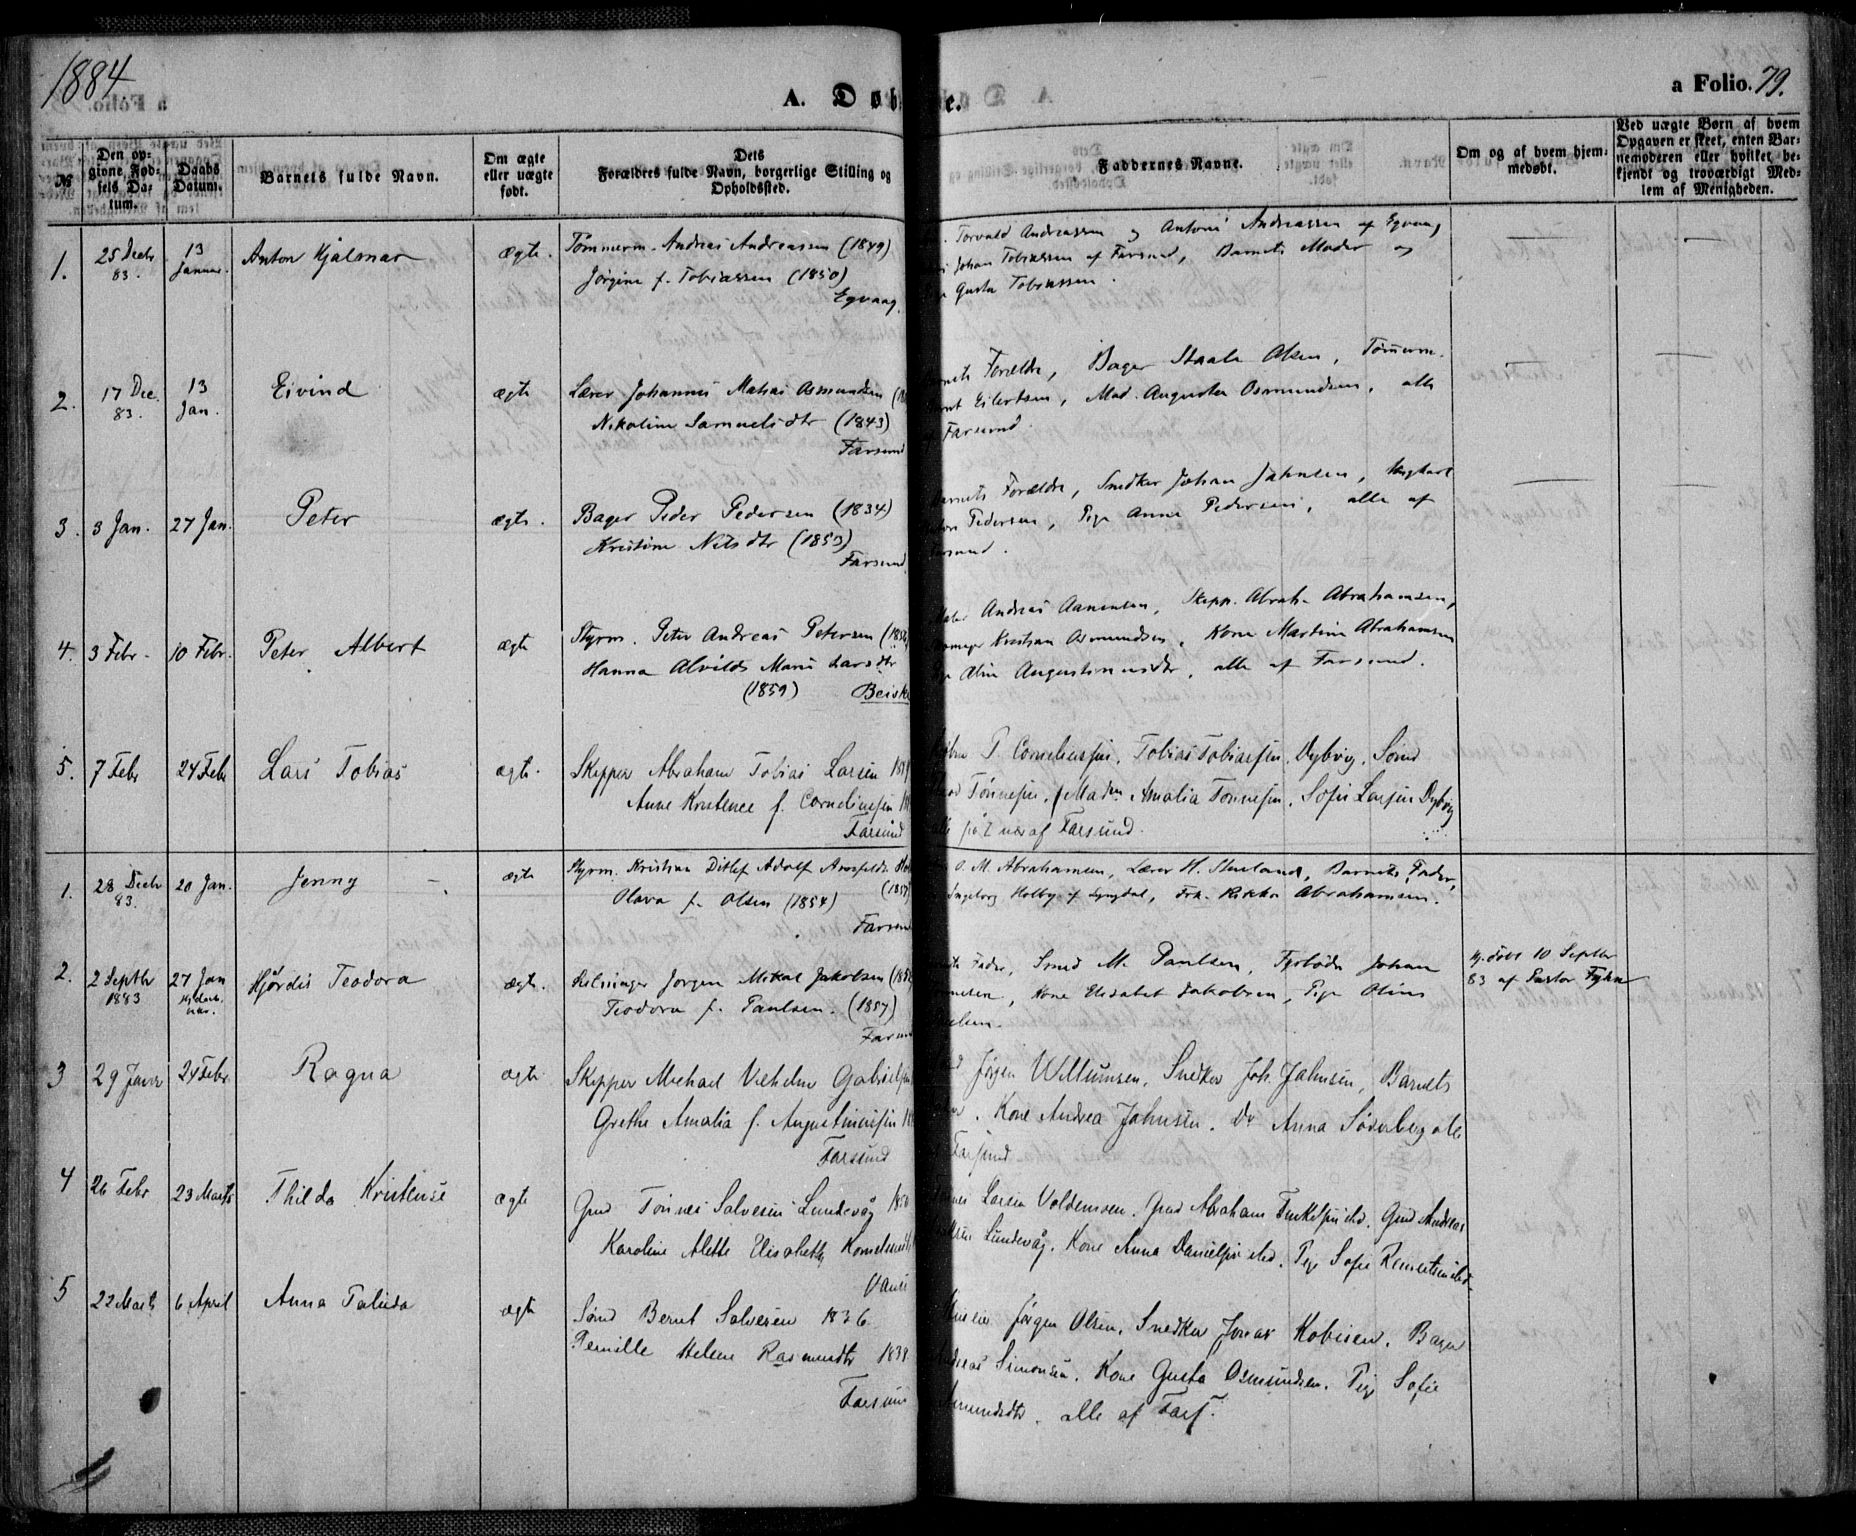 1884
A. Døb
e.
a Folio. 79.
№
Den opgivne Fødsels Datum.
Daabs Datum.
Barnets fulde Navn.
Om ægte eller uægte født.
Dets Forældres fulde Navn, borgerlige Stilling og Opholdssted.
Faddernes Navne.
Om og af hvem hjemmedøbt.
Ved uægte Børn af hvem Opgaven er skeet, enten Barnemoderen eller hvilket bekjendt og troværdigt Medlem af Menigheden.
1. 25 Decbr 83. 13 Januar. Anton Hjalmar ægte. Tømmerm. Andreas Andreassen (1849)
Jørgine f. Tobiassen (1850)
Egvaag.
Torvald Andreassen og Antoni Andreassen af Egvaag
Johan Tobiassen af Farsund, Barnets Moder og
Gusta Tobiassen.
2. 17 Dec. 83. 13 Jan. Eivind ægte Lærer Johannes Matias Osmundsen
Nikoline Samuelsdtr (1843)
Farsund
Forældre, Bager Staale Olsen, Tømerm.
Eilertsen, Mad. Augusta Osmundsen, alle
Farsund.
3. 3 Jan. 27 Jan. Peter ægte. Bager Peder Pedersen (1834)
Kristine Nilsdtr (1853)
Farsund.
Forældre, Snedker Johan Jahnsen, Ungkarl
Pedersen, Pige Anne Pedersen, alle af
4. 3 Febr. 10 Febr. Peter Albert ægte Styrm. Peter Andreas Petersen
Hanna Alvilde Marie Larsdtr
(1859) Beiske
Andreas Aanensen, Skipp. Abrah. Abrahamsen,
Kristian Osmundsen, Kone Martine Abrahamsen
Oline Augustinusdtr, alle af Farsund.
5. 7 Febr 24 Febr Lars Tobias ægte. Skipper Abraham Tobias Larsen
Anne Kristence f. Corneliussen
Farsund
P. Corneliussen, Tobias Tobiassen Dybvig, Sømd
Tønnesen, Madm Amalia Tønnesen, Sofie Larsen Dybvig
af Farsund.
1. 28 Decbr 83. 20 Jan. Jenny ægte Styrm. Kristian Ditlef Adolf
Olava f. Olsen (1854)
Farsund
O. M. Abrahamsen, Lærer H. Skurland, Barnets Fader,
Ingeborg Holby af Lyngdal, Frk. Rikka Abrahamsen.
2. 2 Septbr 1883 27 Jan Hjørdis Teodora ægte. Jørgen Mikal Jakobsen
Teodora f. Paulsen. (1857)
Fader, Smed M. Paulsen, Fyrbøder Johan
Kone Elisabet Jakobsen, Pige Oline
Hj. døbt 10 Septbr
83 af Pastor Fyhn
3 29 Janr 24 Febr. Ragna ægte Skipper Michael Vilhelm Gabrielsen
Grethe Amalia f. Augustinussen
Farsund
Jørgen Willumsen, Snedker Joh. Jahnsen, Barnets
Kone Andrea Jahnsen. Do Anna Søderberg alle
Farsund
4 26 Febr 23 Marts Thilda Kristense ægte Gmd Tønnes Salvesen Lundevåg
Karoline Alette Elisabeth
Larsen Voldemoen. Gmd Abraham Gmd Andreas
Lundevåg. Kone Anna Danielsen Pige Sofie
5 22 Marts 6 April Anna Talida ægte Sømd Bernt Salvesen 1836
Pernille Helene Rasmusdtr 1838
Farsund
Jørgen Olsen, Snedker Jonas Kobisen. Bager
Simonsen. Kone Gusta Osmundsen. Pige Sofie
alle af Fars.